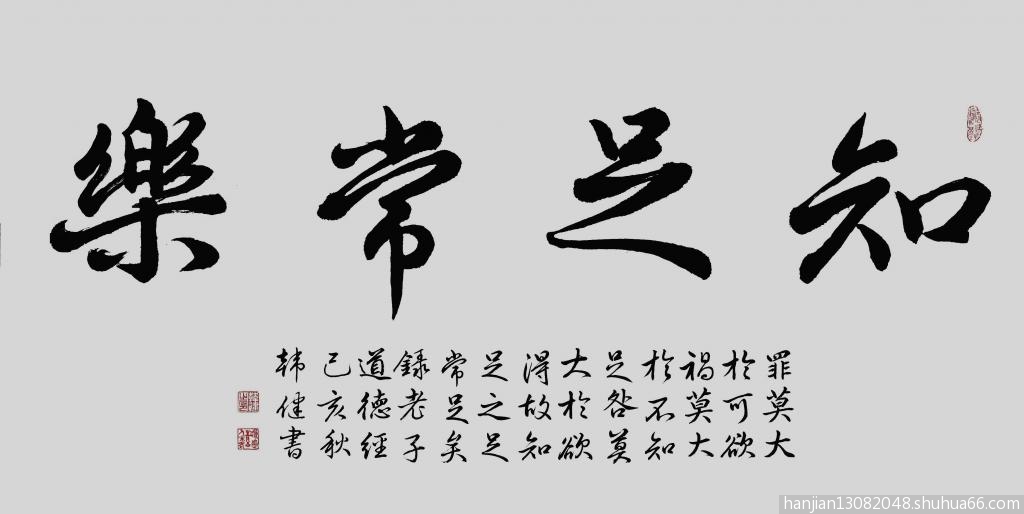 知足常樂
罪莫大
於可欲
禍莫大
於不知
足咎莫
大於欲
得故知
足之足
常足矣
録老子
道德經
己亥秋
韩健書
hanjian13082048.shuhua66.com